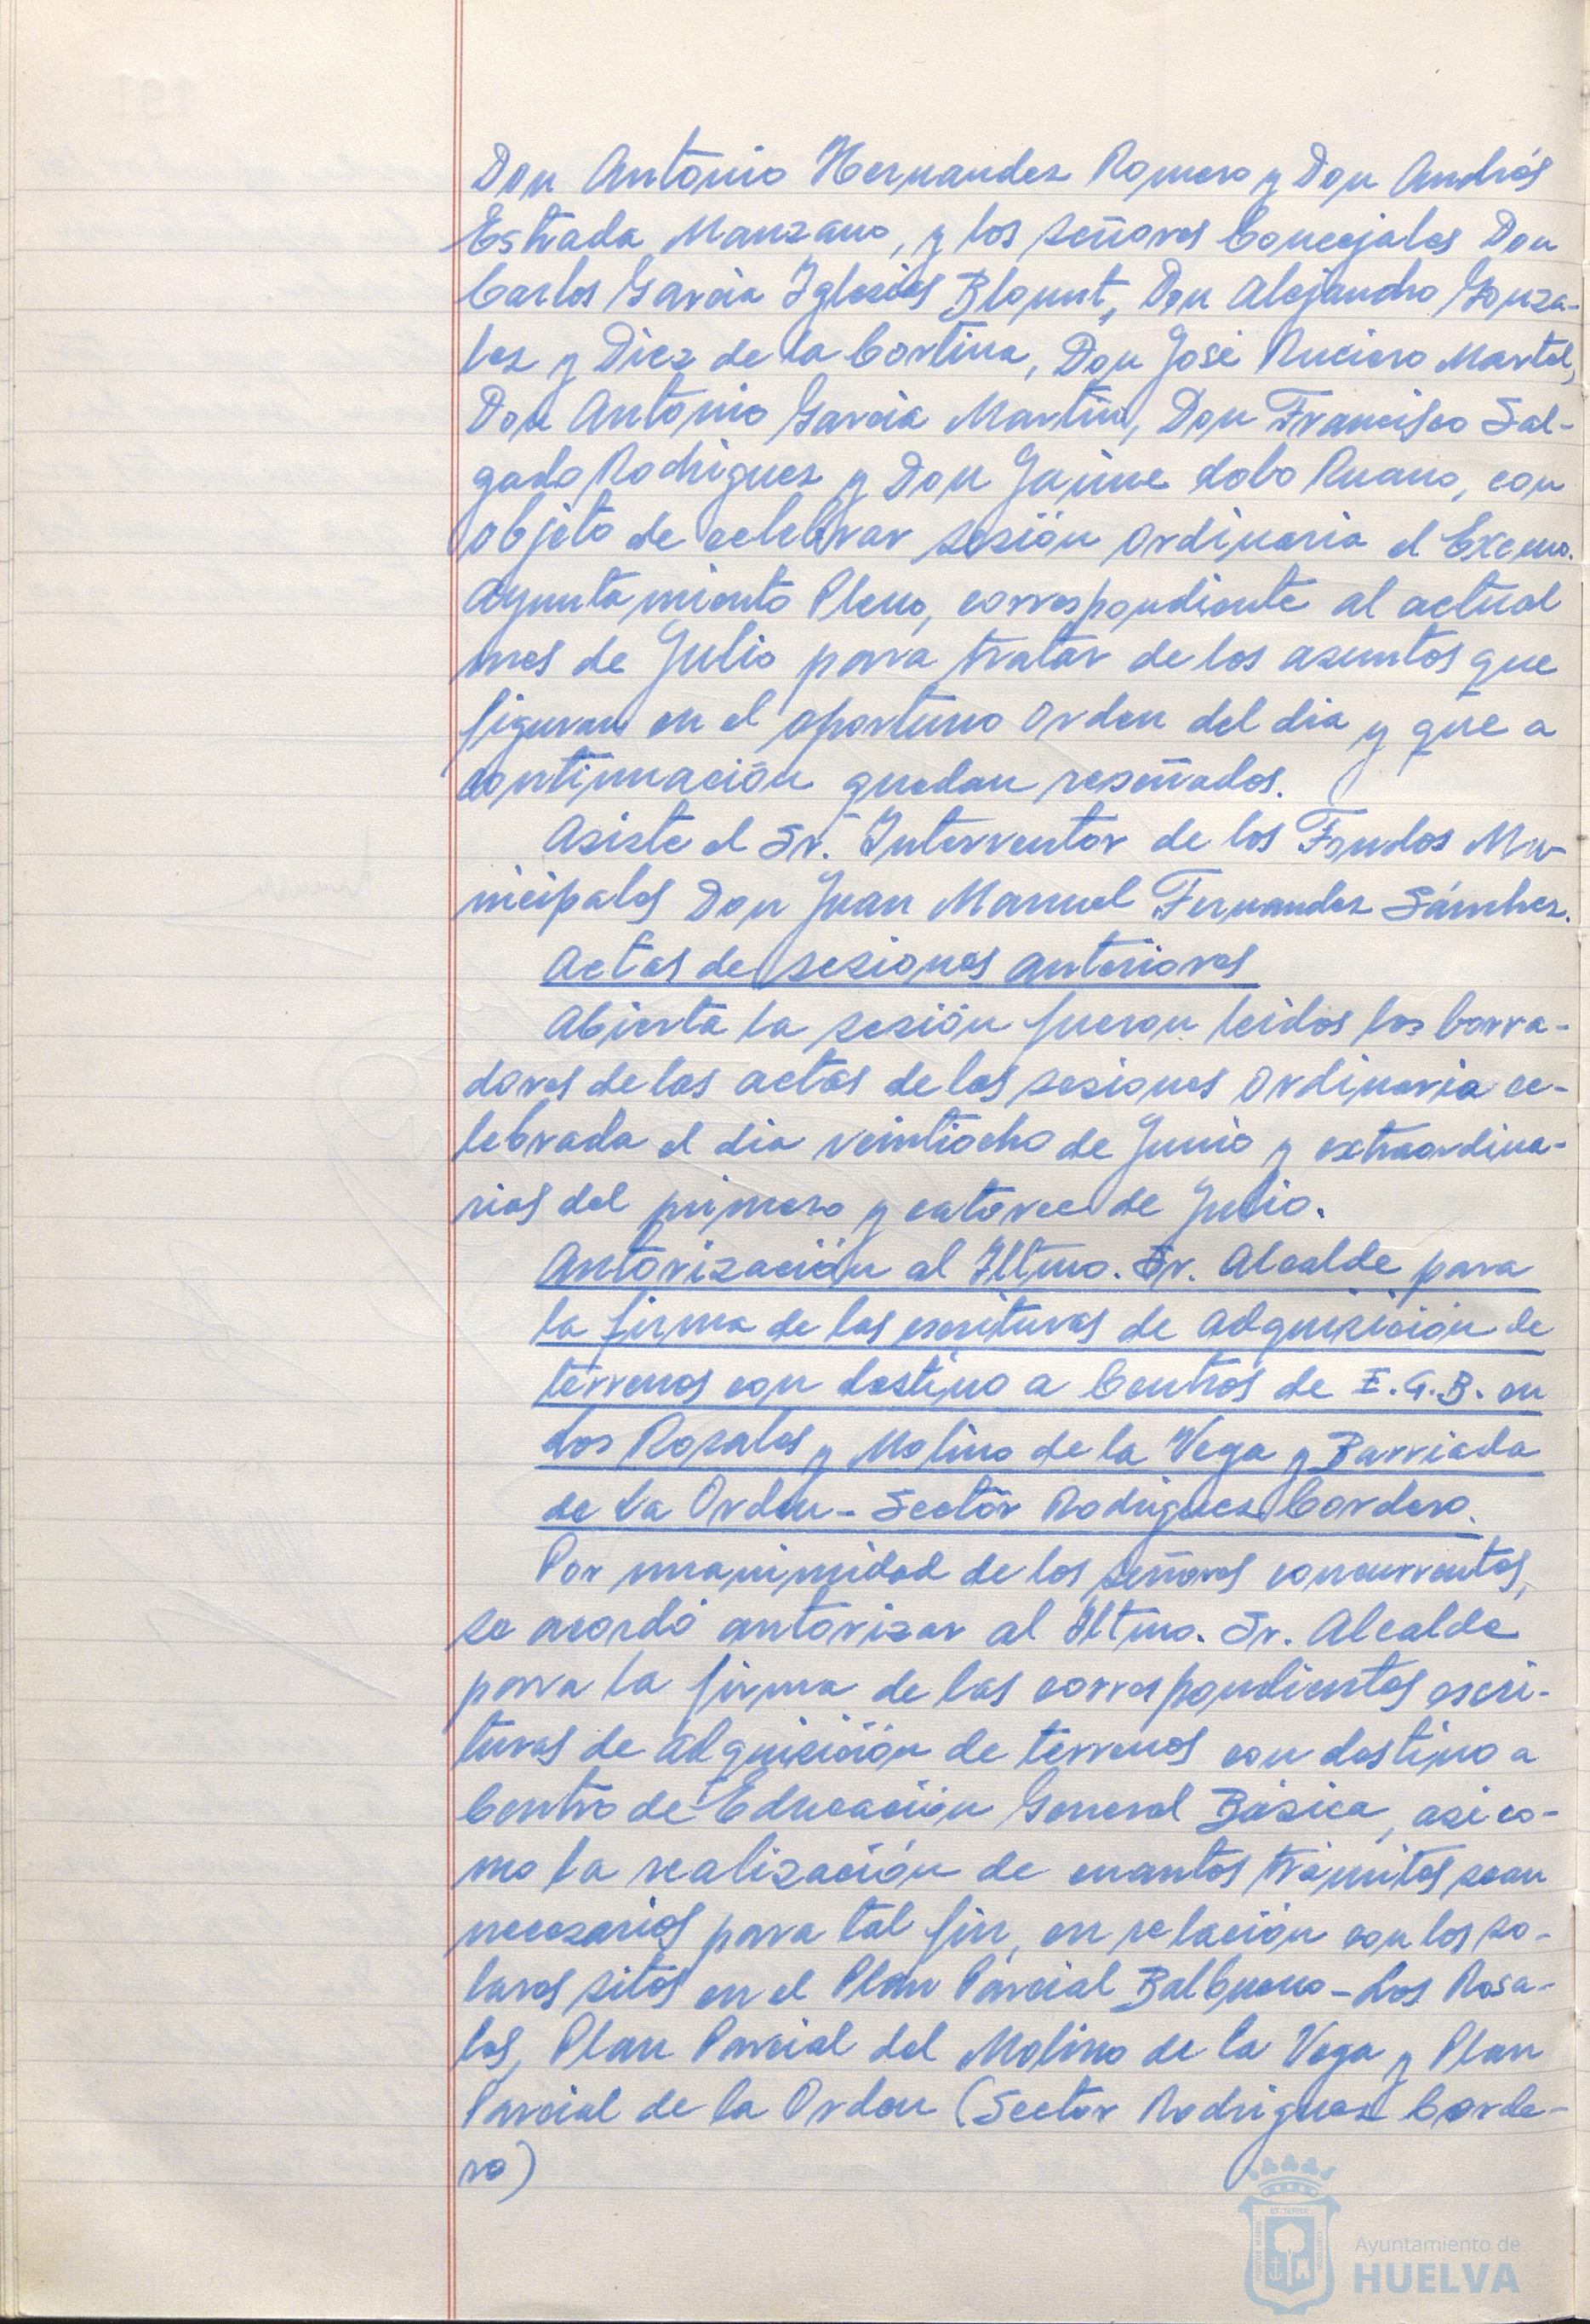 Don Antonio Hernandez Romero y Don Andrés
Estrada Manzano, y los señores Concejales Don
Carlos Garcia Iglesias Blount, Don Alejandro Gonza-
lez y Diez de la Cortina, Don José Ruciero Martel,
Don Antonio Garcia Martin, Don Francisco Sal-
gado Rodriguez y Don Jaime Lobo Ruano, con
objeto de celebrar sesión ordinaria el Excmo.
Ayuntamiento Pleno, correspondiente al actual
mes de Julio para tratar de los asuntos que
figuran en el oportuno Orden del dia y que a
continuación quedan reseñados.
Asiste el Sr. Interventor de los Fondos Mu-
nicipales Don Juan Manuel Fernandez Sánchez.
Actas de sesiones anteriores
Abierta la sesión fueron leidos los borra-
dores de las actas de las sesiones ordinaria ce-
lebrada el dia veintiocho de Junio y extraordina-
rias del primero y catorce de Julio.
Autorización al Iltmo. Sr. Alcalde para
la firma de las escrituras de adquisición de
terrenos con destino a Centros de E.G.B. en
Los Rosales y Molino de la Vega y Barriada
de La Orden - Sector Rodriguez Cordero.
Por unanimidad de los señores concurrentes,
se acordó autorizar al Iltmo. Sr. Alcalde
para la firma de las correspondientes escri-
turas de adquisición de terrenos con destino a
Centro de Educación General Básica, asi co-
mo la realización de cuantos trámites sean
necesarios para tal fin, en relación con los so-
lares sitos en el Plan Parcial Balbueno - Los Rosa-
les, Plan Parcial del Molino de la Vega y Plan
Parcial de la Orden (Sector Rodriguez Corde-
ro)
Ayuntamiento de
HUELVA